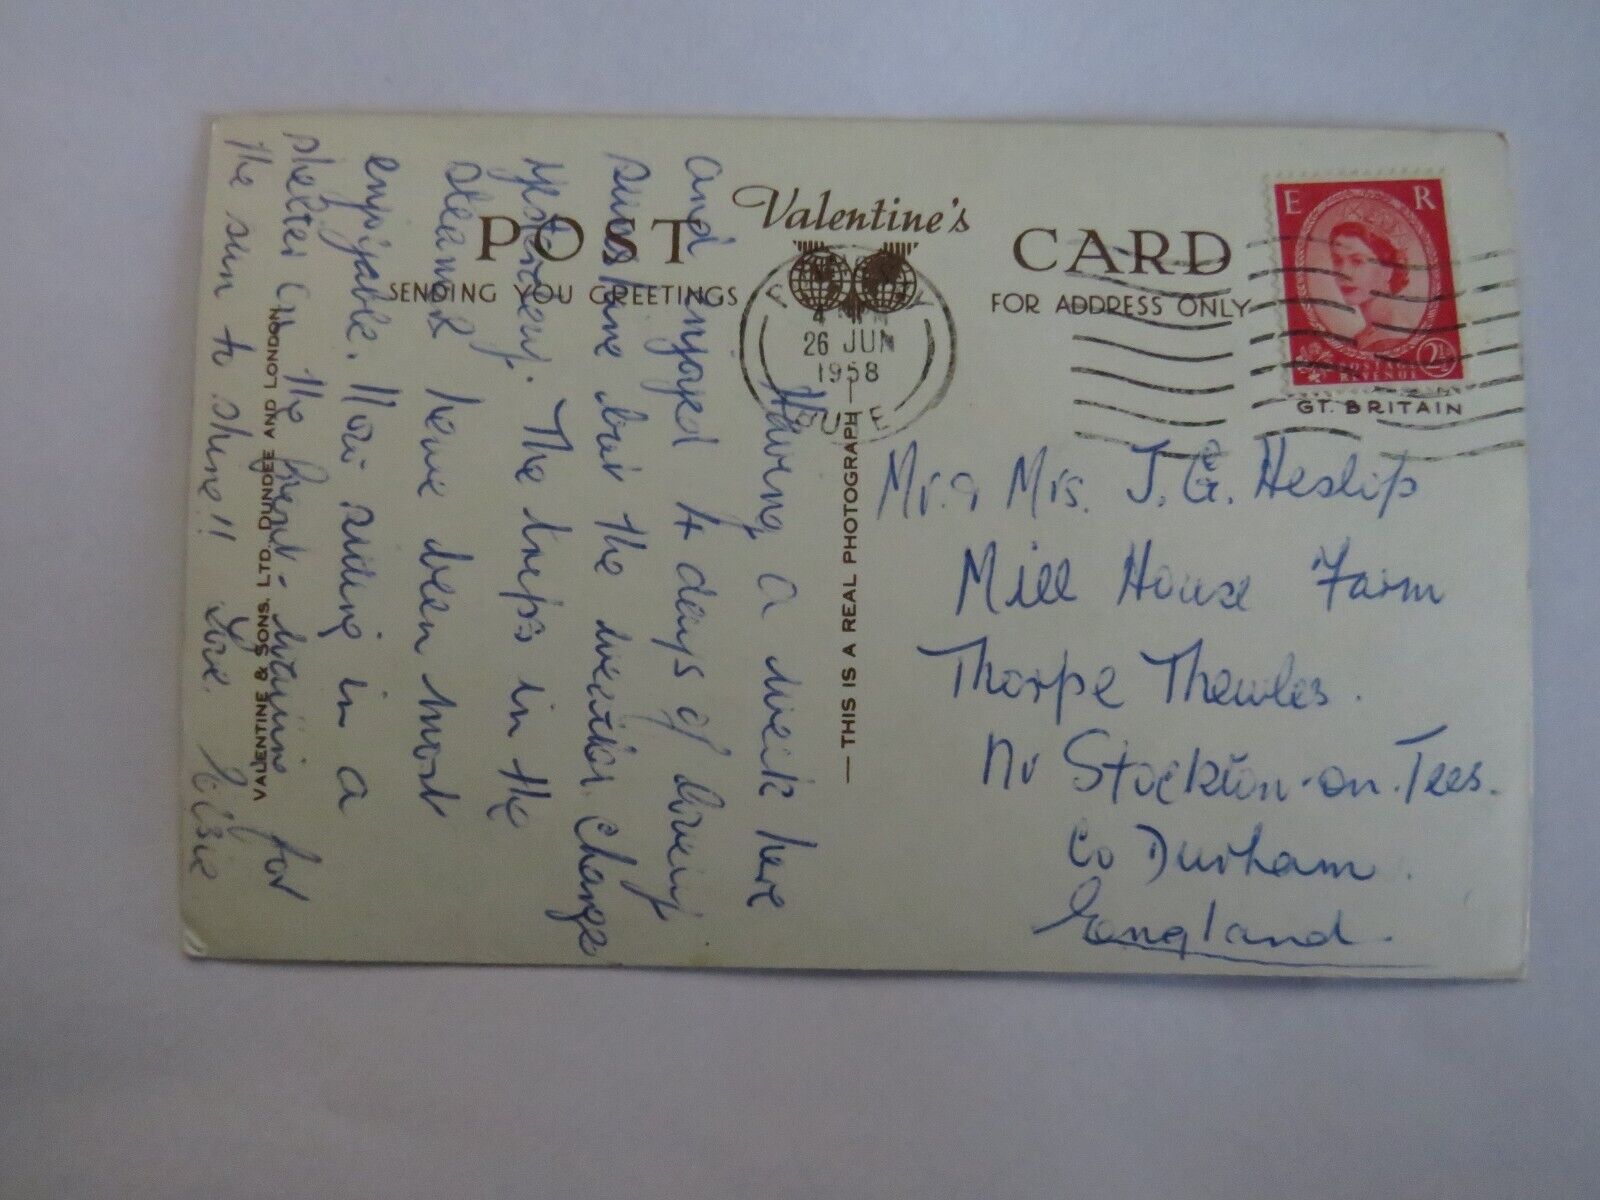 POST Valentine's CARD
SENDING YOU GREETINGS
FOR ADDRESS ONLY
26 JUN
1958
BUTE
E R
POSTAGE REVENUE
2½
GT. BRITAIN
Having a week here
and enjoyed 4 days of
sunshine but the weather change
yesterday. The trips in the
steamers have been most
enjoyable. Now sitting in a
shelter on the waiting for
the sun to shine!! Love. Elsie
— THIS IS A REAL PHOTOGRAPH —
VALENTINE & SONS, LTD. DUNDEE AND LONDON
Mr. & Mrs. J. G. Heslip
Mill House Farm
Thorpe Thewles.
Nr Stockton-on-Tees.
Co Durham.
England.